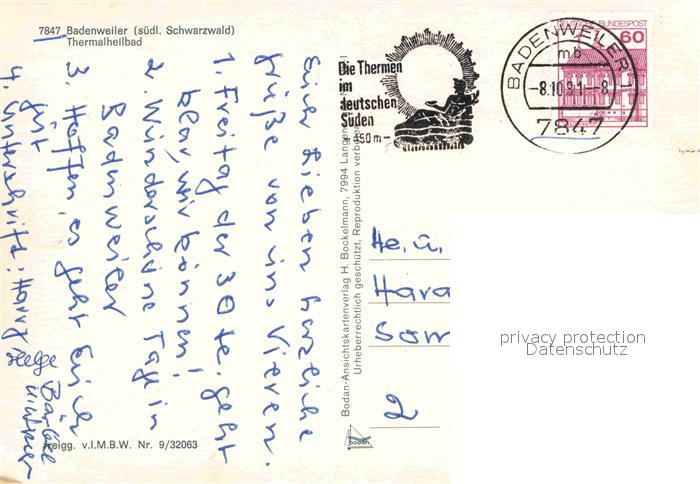 7847 Badenweiler (südl. Schwarzwald)
Thermalheilbad
Die Thermen
im
deutschen
Süden
450 m
BADENWEILER 1
mb
-8.10.81-8
7847
DEUTSCHE BUNDESPOST
60
Euer lieben herzliche
Grüße von uns Vieren.
1. Freitag der 30te. geht
klar, wir können!
2. Wunderschöne Tage in
Badenweiler
3. Hoffen, es geht Euch
gut
4. Unterschrift: Harry
Helge
Bärbel
Bodan-Ansichtskartenverlag H. Bockelmann, 7994 Langen
Urheberrechtlich geschützt. Reproduktion verboten
bodan
He. u.
Hara
Som
2
privacy protection
Datenschutz
Freigg. v.I.M.B.W. Nr. 9/32063